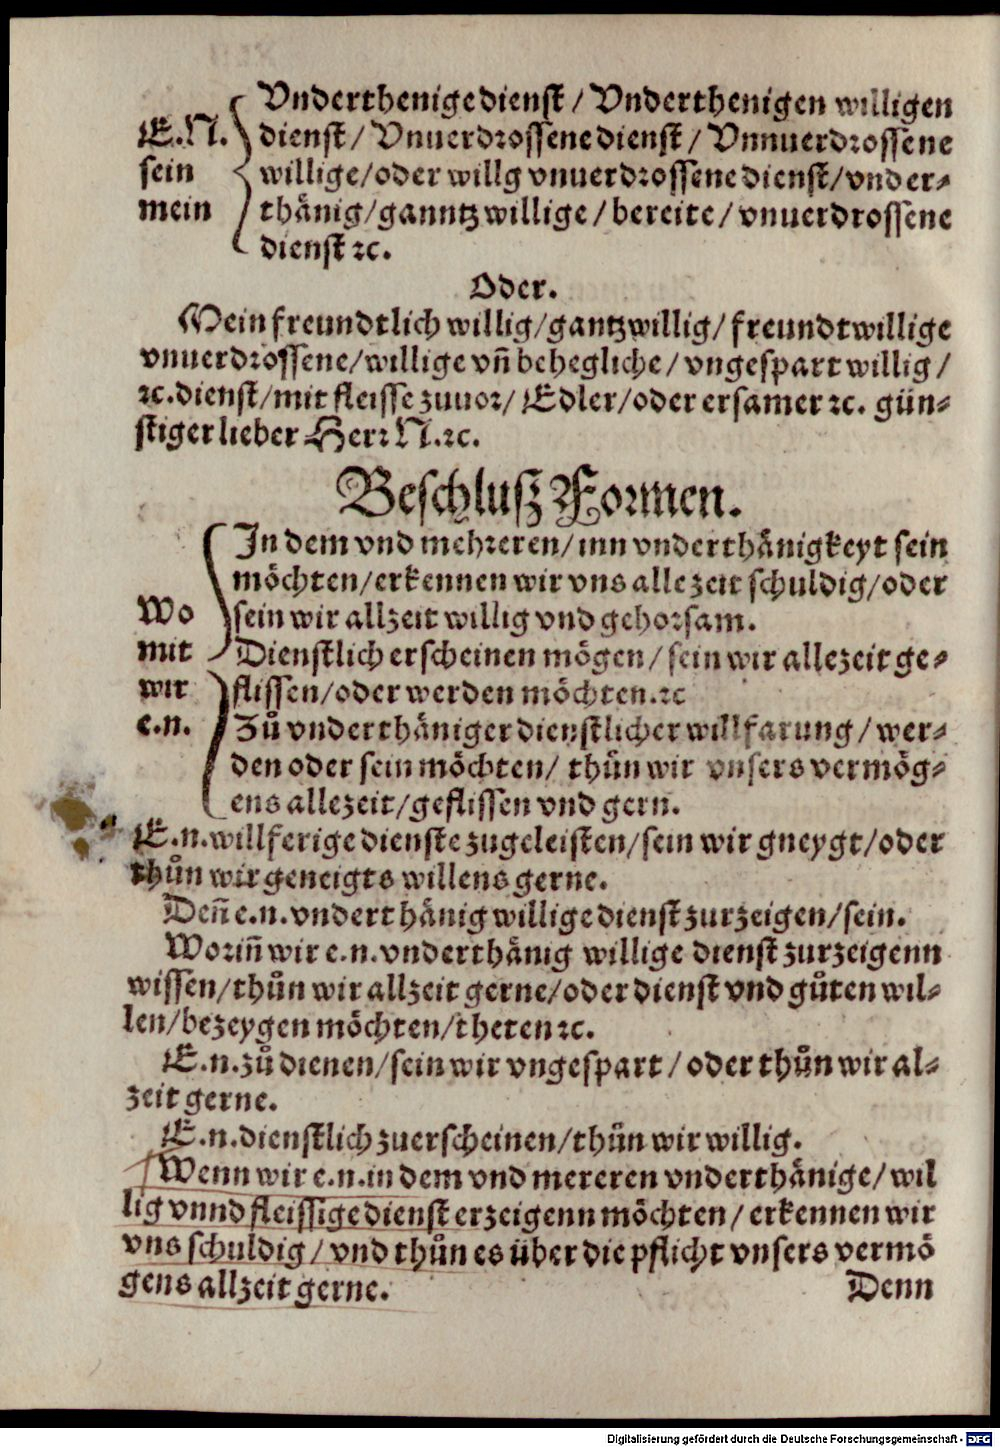 Vnderthenige dienst / Vnderthenigen willigen
E.N. dienst / Vnuerdrossene dienst / Vnnuerdrossene
sein willige/oder willg vnuerdrossene dienst/vnder⸗
mein thänig/ganntz willige / bereite / vnuerdrossene
dienst ꝛc.
Oder.
Mein freundtlich willig/gantzwillig/ freundtwillige
vnuerdrossene/willige vn̄ behegliche / vngespart willig /
ꝛc. dienst/mit fleisse zuuor/ Edler/oder ersamer ꝛc. gün⸗
stiger lieber Herr N.ꝛc.
Beschlusz Formen.
In dem vnd mehreren/inn vnderthänigkeyt sein
möchten/erkennen wir vns alle zeit schuldig/oder
Wo sein wir allzeit willig vnd gehorsam.
mit Dienstlich erscheinen mögen / sein wir allezeit ge⸗
wir flissen/oder werden möchten.ꝛc
e.n. Zuͦ vnderthäniger dienstlicher willfarung / wer⸗
den oder sein möchten/ thuͦn wir vnsers vermög⸗
ens allezeit/geflissen vnd gern.
E.n.willferige dienste zugeleisten/sein wir gneygt/oder
thuͦn wir geneigts willens gerne.
Den̄ e.n.vnderthänig willige dienst zurzeigen/sein.
Worin̄ wir e.n.vnderthänig willige dienst zurzeigenn
wissen/thuͦn wir allzeit gerne/oder dienst vnd guͦten wil⸗
len/bezeygen möchten/theten ꝛc.
E.n.zuͦ dienen/sein wir vngespart / oder thuͦn wir al⸗
zeit gerne.
E.n.dienstlich zuerscheinen/thuͦn wir willig.
Wenn wir e.n.in dem vnd mereren vnderthänige/ wil
lig vnnd fleissige dienst erzeigenn möchten / erkennen wir
vns schuldig / vnd thuͦn es über die pflicht vnsers vermö
gens allzeit gerne. Denn
Digitalisierung gefördert durch die Deutsche Forschungsgemeinschaft - DFG